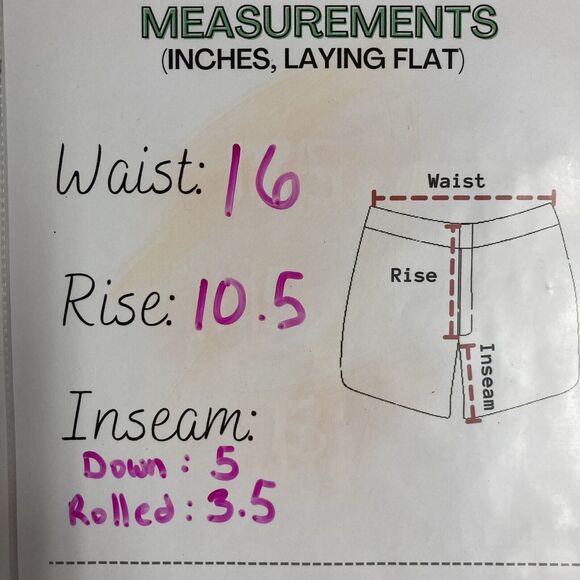 MEASUREMENTS
(INCHES, LAYING FLAT)
Waist: 16
Rise: 10.5
Inseam:
Down: 5
Rolled: 3.5
Waist
Rise
Inseam